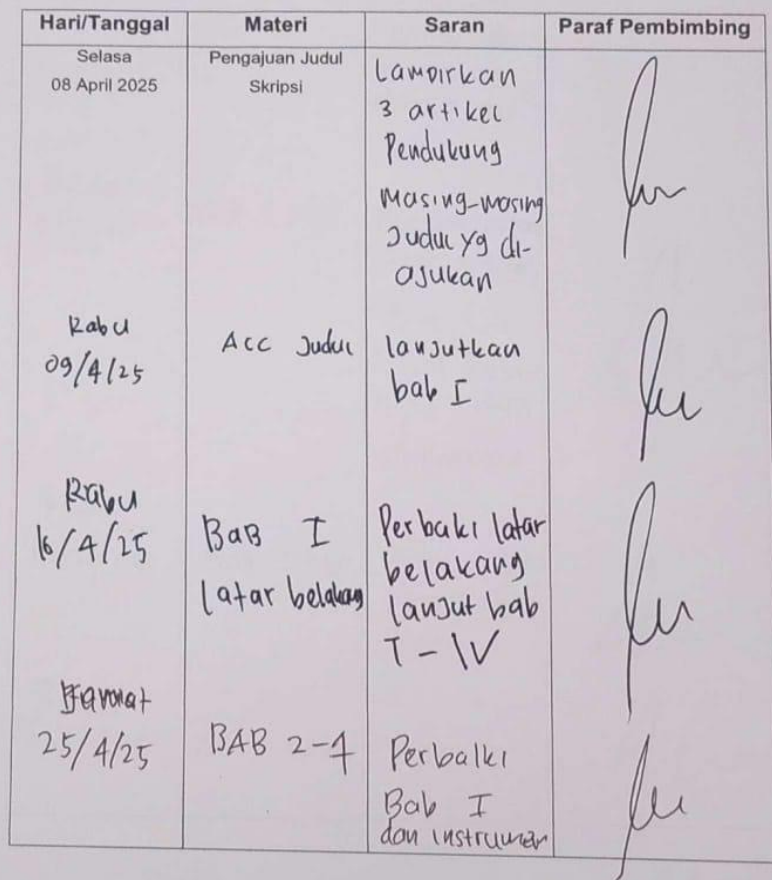 Hari/Tanggal Materi Saran Paraf Pembimbing
Selasa
08 April 2025
Pengajuan Judul
Skripsi
Lampirkan
3 artikel
Pendukung
masing-masing
Judul yg di-
ajukan
Rabu
09/4/25
Acc Judul
lanjutkan
bab I
Rabu
16/4/25
BaB I
latar belakang
Perbaki latar
belakang
lanjut bab
I - IV
25/4/25
BAB 2-4
Perbaiki
Bab I
dan instrumen